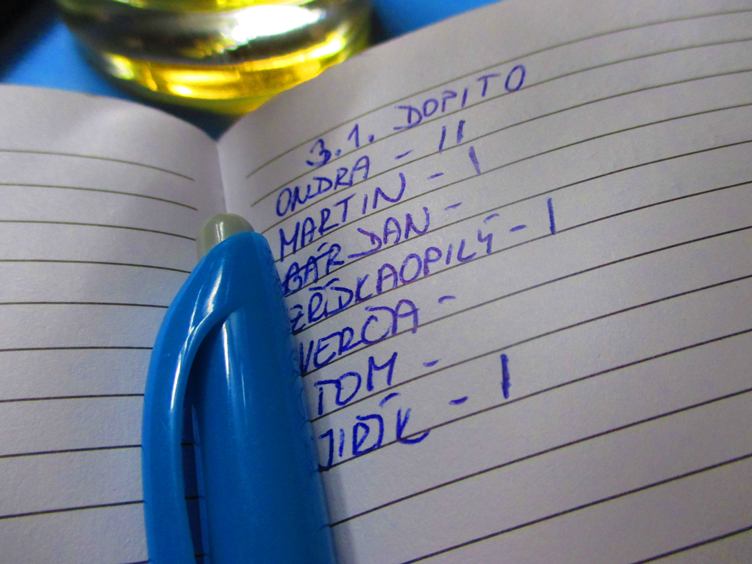 3.1. DOPITO
ONDRA - II
MARTIN - I
BÁR_DAN -
ZŘÍDKAOPILÝ - I
VERČA -
TOM -
JIŘÍK - I